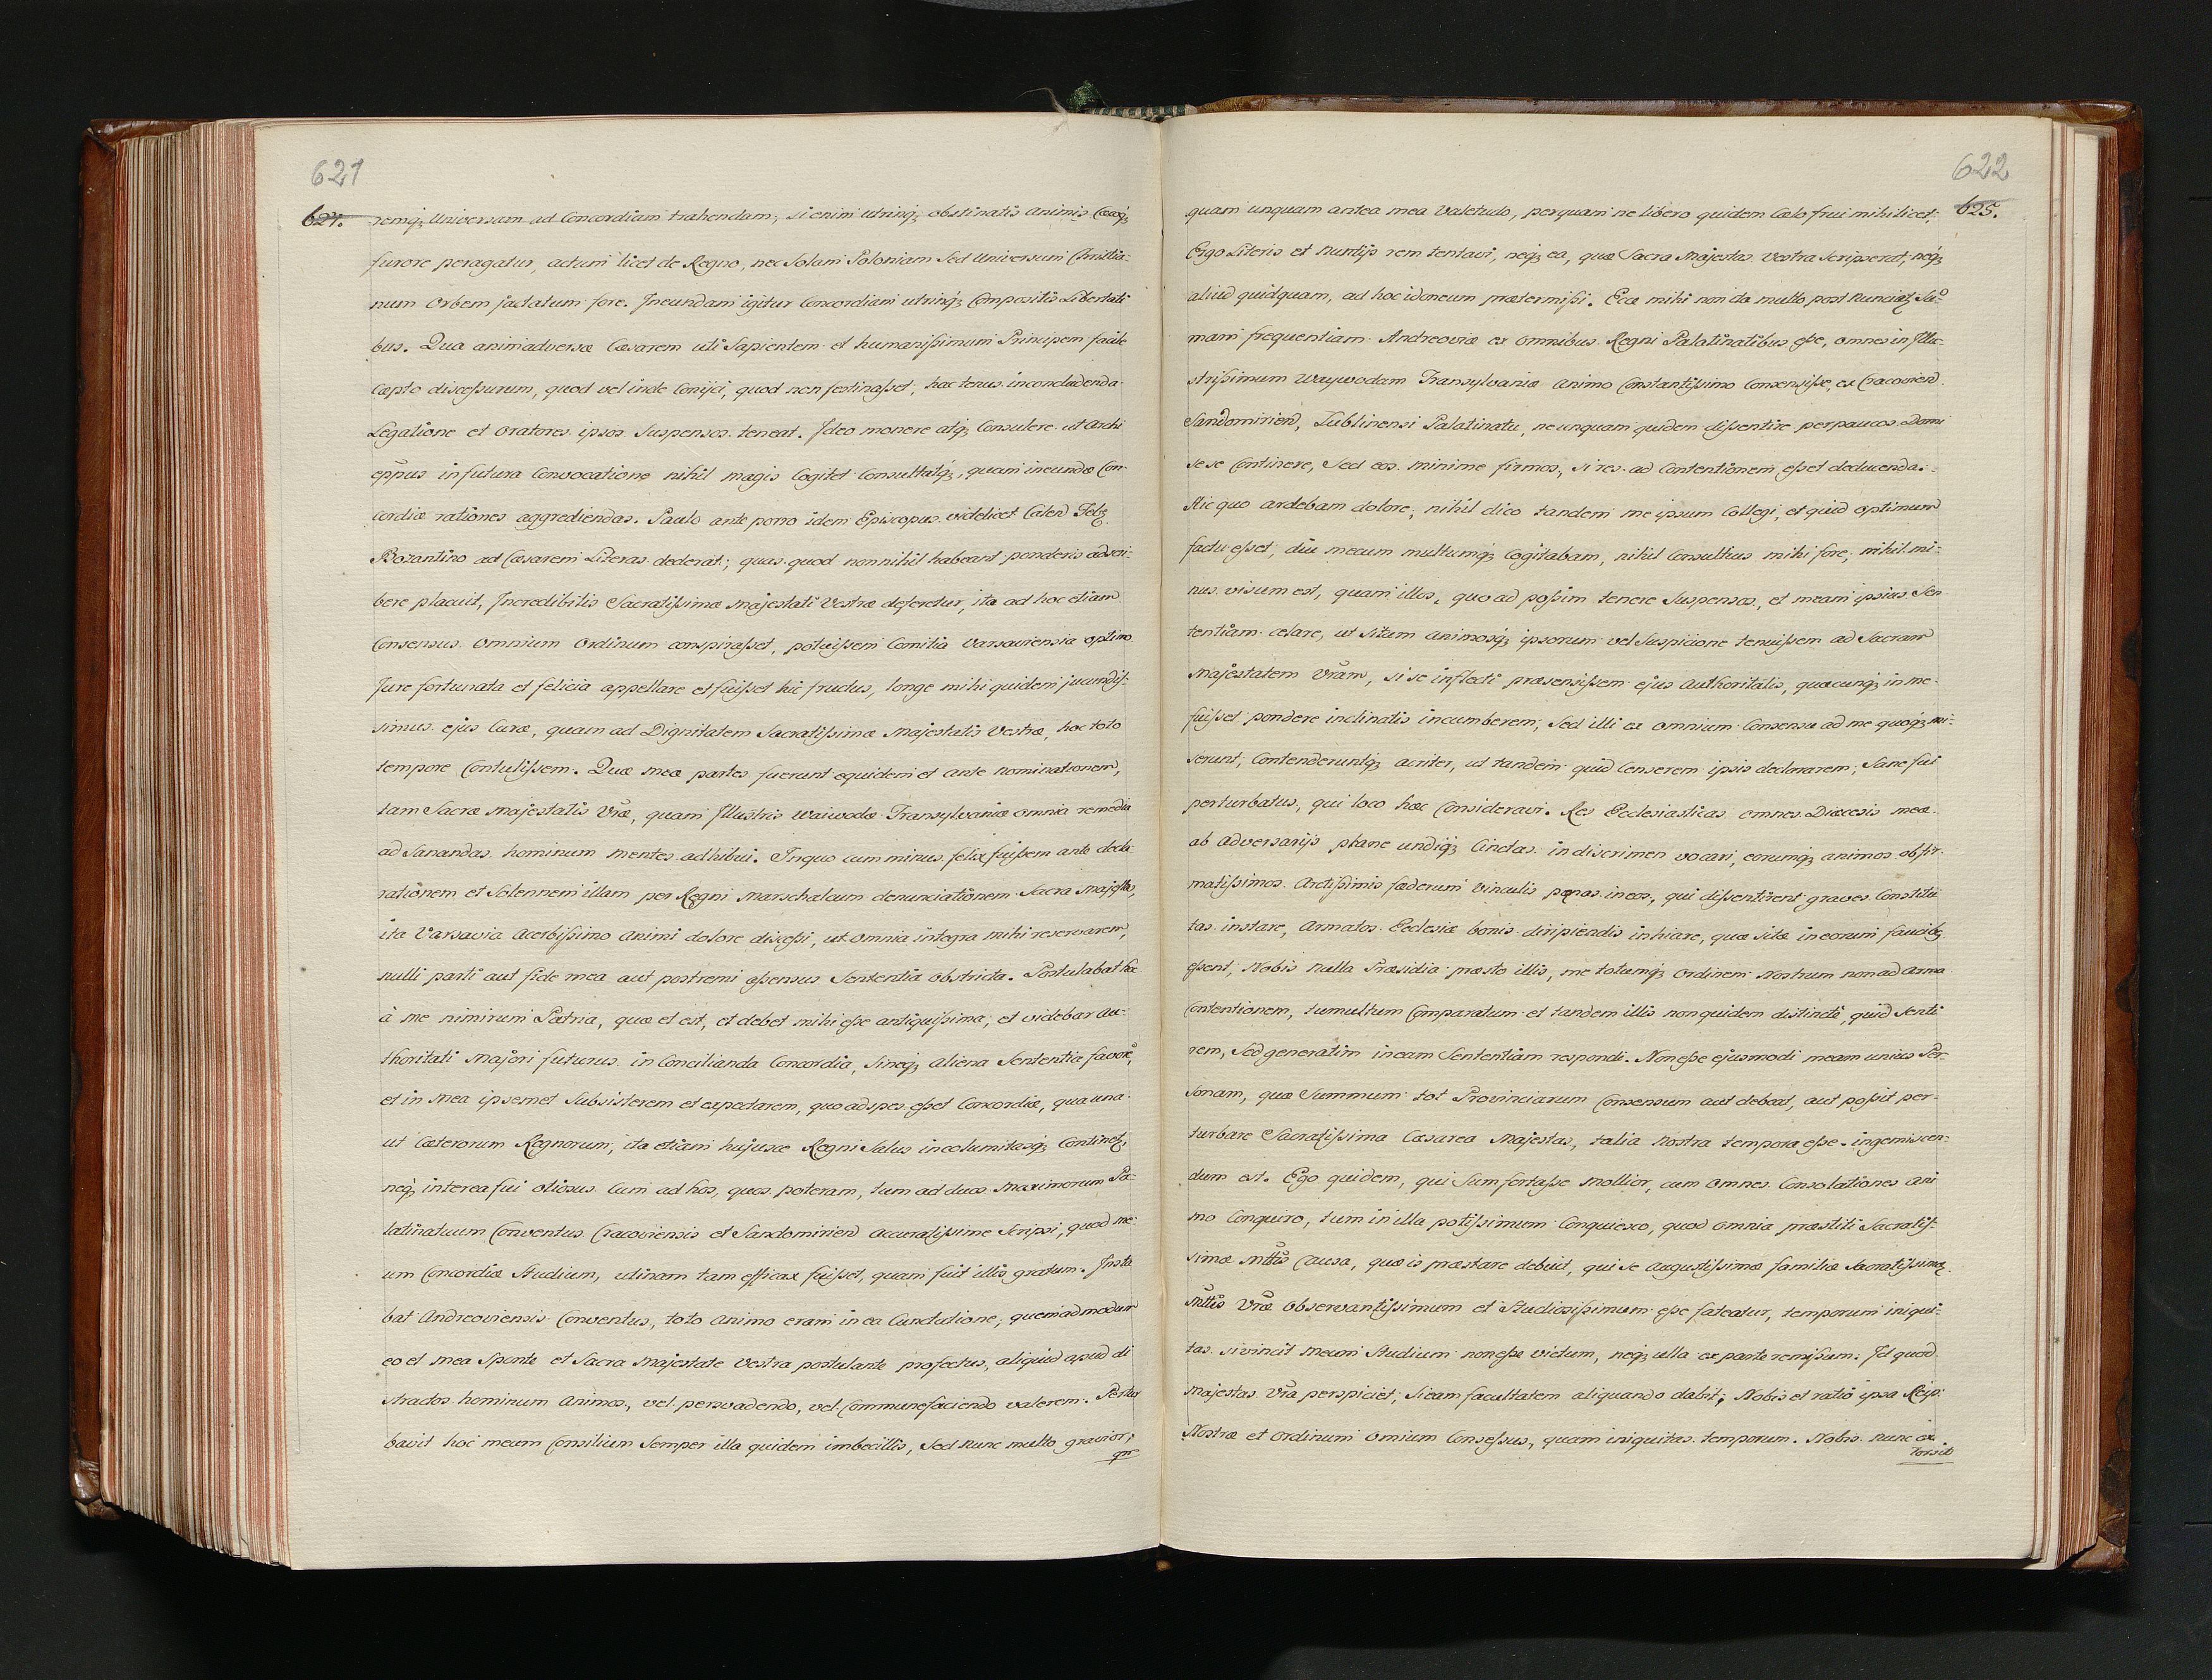 621
624.
remq; Universam ad Concordiam trahendam, si enim utrinq; obstinatis animis Cæcoq;
furore peragatur, actum licet de Regno, nec Solam Poloniam Sed Universum Christia-
num Orbem jactatum fore. Ineundam igitur Concordiam utrinq; Compositis Libertati
bus. Qua animadversa Cæsarem uti Sapientem et humanissimum Principem facile
cæpto discessurum, quod vel inde Conijci, quod non festinasset, hac tenus inconcludenda
Legatione et Oratores ipsos Suspensos teneat. Ideo monere atq; Consulere ut Archi
eppus in futura Convocatione nihil magis Cogitet Consultatq;, quam ineundæ Con-
cordiæ rationes aggrediendas. Paulo ante porro idem Episcopus videlicet Calen Feb;
Bozantino ad Cæsarem Literas dederat; quas quod nonnihil habeant ponderis adscri-
bere placuit, Incredibilis Sacratissimæ Majestati Vestræ defertur, ita ad hoc etiam
Consensus Omnium Ordinum conspirasset, potuissem Comitia Varsaviensia optimo
Jure fortunata et felicia appellare et fuisset hic fructus, longe mihi quidem jucundis-
simus ejus Curæ, quam ad Dignitatem Sacratissimæ Majestatis Vestræ, hoc toto
tempore Contulissem. Quæ meæ partes fuerunt equidem et ante nominationem,
tam Sacræ Majestatis Vræ, quam Illustris Waiwodæ Transylvaniæ omnia remedia
ad Sanandas hominum mentes adhibui. In quo cum minus felix fuissem ante decla-
rationem et Solennem illam per Regni Marschalcum denunciationem Sacra Majestas,
ita Varsavia Acerbissimo Animi dolore discessi, ut omnia integra mihi reservarem,
nulli parti aut fide mea aut postremi assensus Sententia obstricta. Postulabat hoc
à me nimirum Patria, quæ et est, et debet mihi esse antiquissima, et videbar Au-
thoritati Majori futurus in Concilianda Concordia, si neq; aliena Sententia favore,
et in Mea ipsemet Subsisterem et expectarem, quo ad spes esset Concordiæ, qua una
ut Cæterorum Regnorum, ita etiam hujusce Regni Salus incolumitasq; Continet;
neq; interea fui otiosus Cum ad hos, quos poteram, tum ad duos Maximorum Pa-
latinatuum Conventus Cracoviensis et Sandomirien Accuratissime Scripsi, quod me-
um Concordiæ Studium, utinam tam efficax fuisset, quam fuit illis gratum. Insta
bat Andreoviensis Conventus, toto Animo eram in ea Cunctatione, quemadmodum
eo et Mea Sponte et Sacra Majestate Vestra postulante profectus, aliquid apud di
stractos hominum Animos, vel persvadendo, vel Commune faciendo valerem. Pertur
bavit hoc meum Consilium Semper illa quidem imbecillis, Sed nunc multo gravior,
qm
622
625.
quam unquam antea mea Valetudo, perquam ne libero quidem Cælo frui mihi licet;
Ergo Literis et Nuntijs rem tentavi, neq; ea, quæ Sacra Majestas Vestra Scripserat, neq;
aliud quidquam, ad hoc idoneum prætermissi. Ecce mihi non da multo post Nunciat; Su-
mam frequentiam Andreoviæ ex omnibus Regni Palatinatibus esse, omnes in Illu-
strissimum Waywodam Transylvaniæ animo Constantissimo Consensisse, ex Cracovien
Sandomirien, Lublinensi Palatinatu, ne unquam quidem dissentire perpaucos Domi
se se Continere, Sed eos minime firmos, si res ad Contentionem esset deducenda.
Hic quo ardebam dolore, nihil dico tandem me ipsum Collegi, et quid optimum
factu esset, diu mecum multumq; Cogitabam, nihil Consultius mihi fore, nihil mi-
nus visum est, quam illos, quo ad possim tenere Suspensos, et meam ipsius Sen
tentiam celare, ut Situm animosq; ipsorum vel Suspicione tenuissem ad Sacram
Majestatem Vram, si se inflecti præsensissem ejus Authoritatis, quæcunq; in me
fuisset pondere inclinatis incumberem, Sed illi ex omnium Consensu ad me quoq; mi-
serunt, Contenderuntq; acriter, ut tandem quid Censerem ipsis declararem, Sane fui
perturbatus, qui loco hæc Consideravi. Res Ecclesiasticas omnes Diæcesis meæ
ab adversarijs plane undiq; Cinctas in discrimen vocari, eorumq; animos obfir-
matissimos Arctissimis fæderum Vinculis pænas in eos, qui dissentirent graves Constitu
tas instare, Armatos Ecclesiæ bonis diripiendis inhiare, quæ sitæ in eorum faucib;
essent, Nobis nulla Præsidia præsto illis, me totumq; Ordinem Nostrum non ad arma
Contentionem, tumultum Comparatum et tandem illis non quidem distincte, quid Senti
rem, Sed generatim in eam Sententiam respondi. Non esse ejusmodi meam unius Per-
sonam, quæ Summum tot Provinciarum Consensum aut debeat, aut possit per-
turbare Sacratissima Cæsarea Majestas, talia Nostra tempora esse. ingemiscen-
dum est. Ego quidem, qui Sum fortasse Mollior, cum omnes Consolationes ani
mo Conquiro, tum in illa potissimum Conquiesco, quod omnia præstiti Sacratis-
simæ Mttis Causa, quæ is præstare debuit, qui se Augustissimæ familiæ Sacratissimæq;
Mttis Vræ Observantissimum et Studiosissimum esse fateatur, temporum iniqui-
tas si vincit meum Studium non esse victum, neq; ulla ex parte remissum. Id quod
Majestas Vra perspiciet, si eam facultatem aliquando dabit, Nobis et ratio ipsa Reip:
Nostræ et Ordinum Omium Consessus, quam iniquitas temporum. Nobis nunc ex
torsit